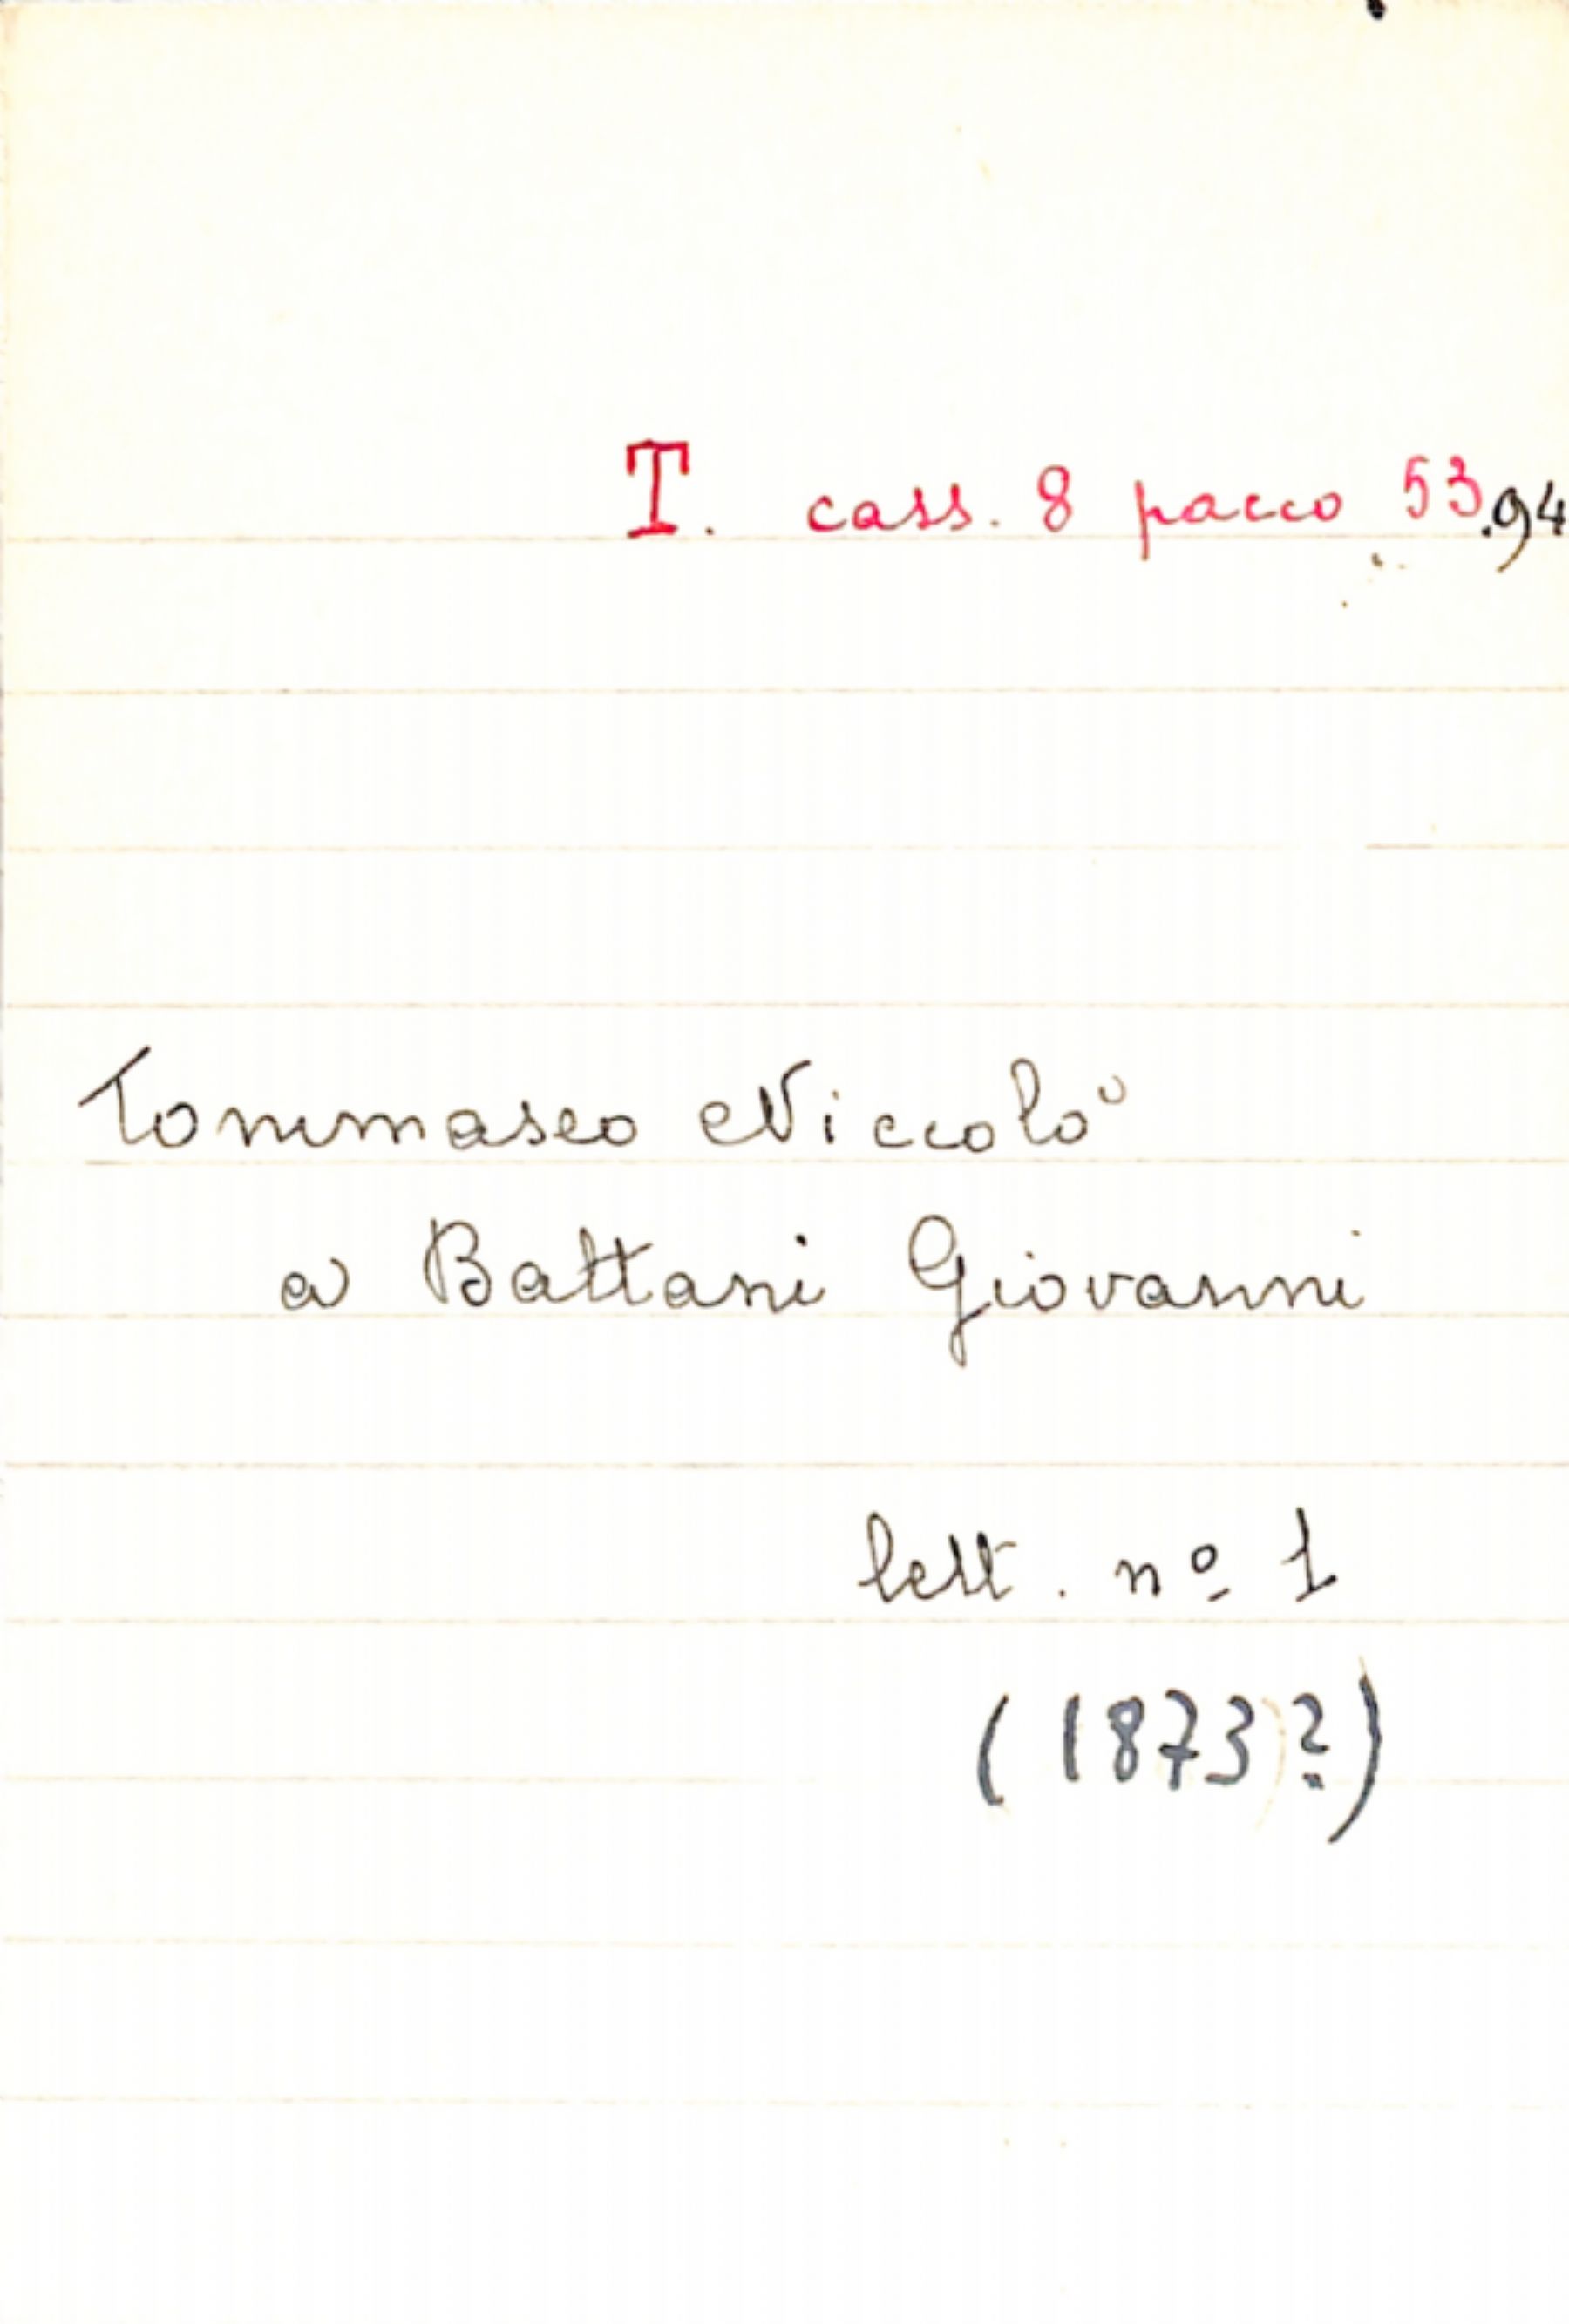 T. cass. 8 pacco 53.94
Tommaseo Niccolò
a Battani Giovanni
lett. nº 1
(1873?)